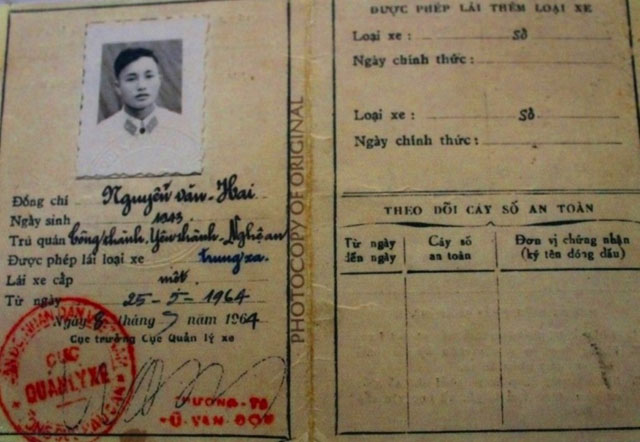 Đồng chí Nguyễn văn-Hai
Ngày sinh 1943
Trú quán Công thành, Yên thành-Nghệ an
Được phép lái loại xe trung xa.
Lái xe cấp một.
Từ ngày 25-5-1964
Ngày tháng năm 1964
Cục trưởng Cục Quản lý xe
CỤC
QUẢN LÝ XE
PHOTOCOPY OF ORIGINAL
ĐƯỢC PHÉP LÁI THÊM LOẠI XE
Loại xe : Số
Ngày chính thức :
Loại xe : Số
Ngày chính thức :
THEO DÕI CÂY SỐ AN TOÀN
Từ ngày đến ngày
Cây số an toàn
Đơn vị chứng nhận (ký tên đóng dấu)